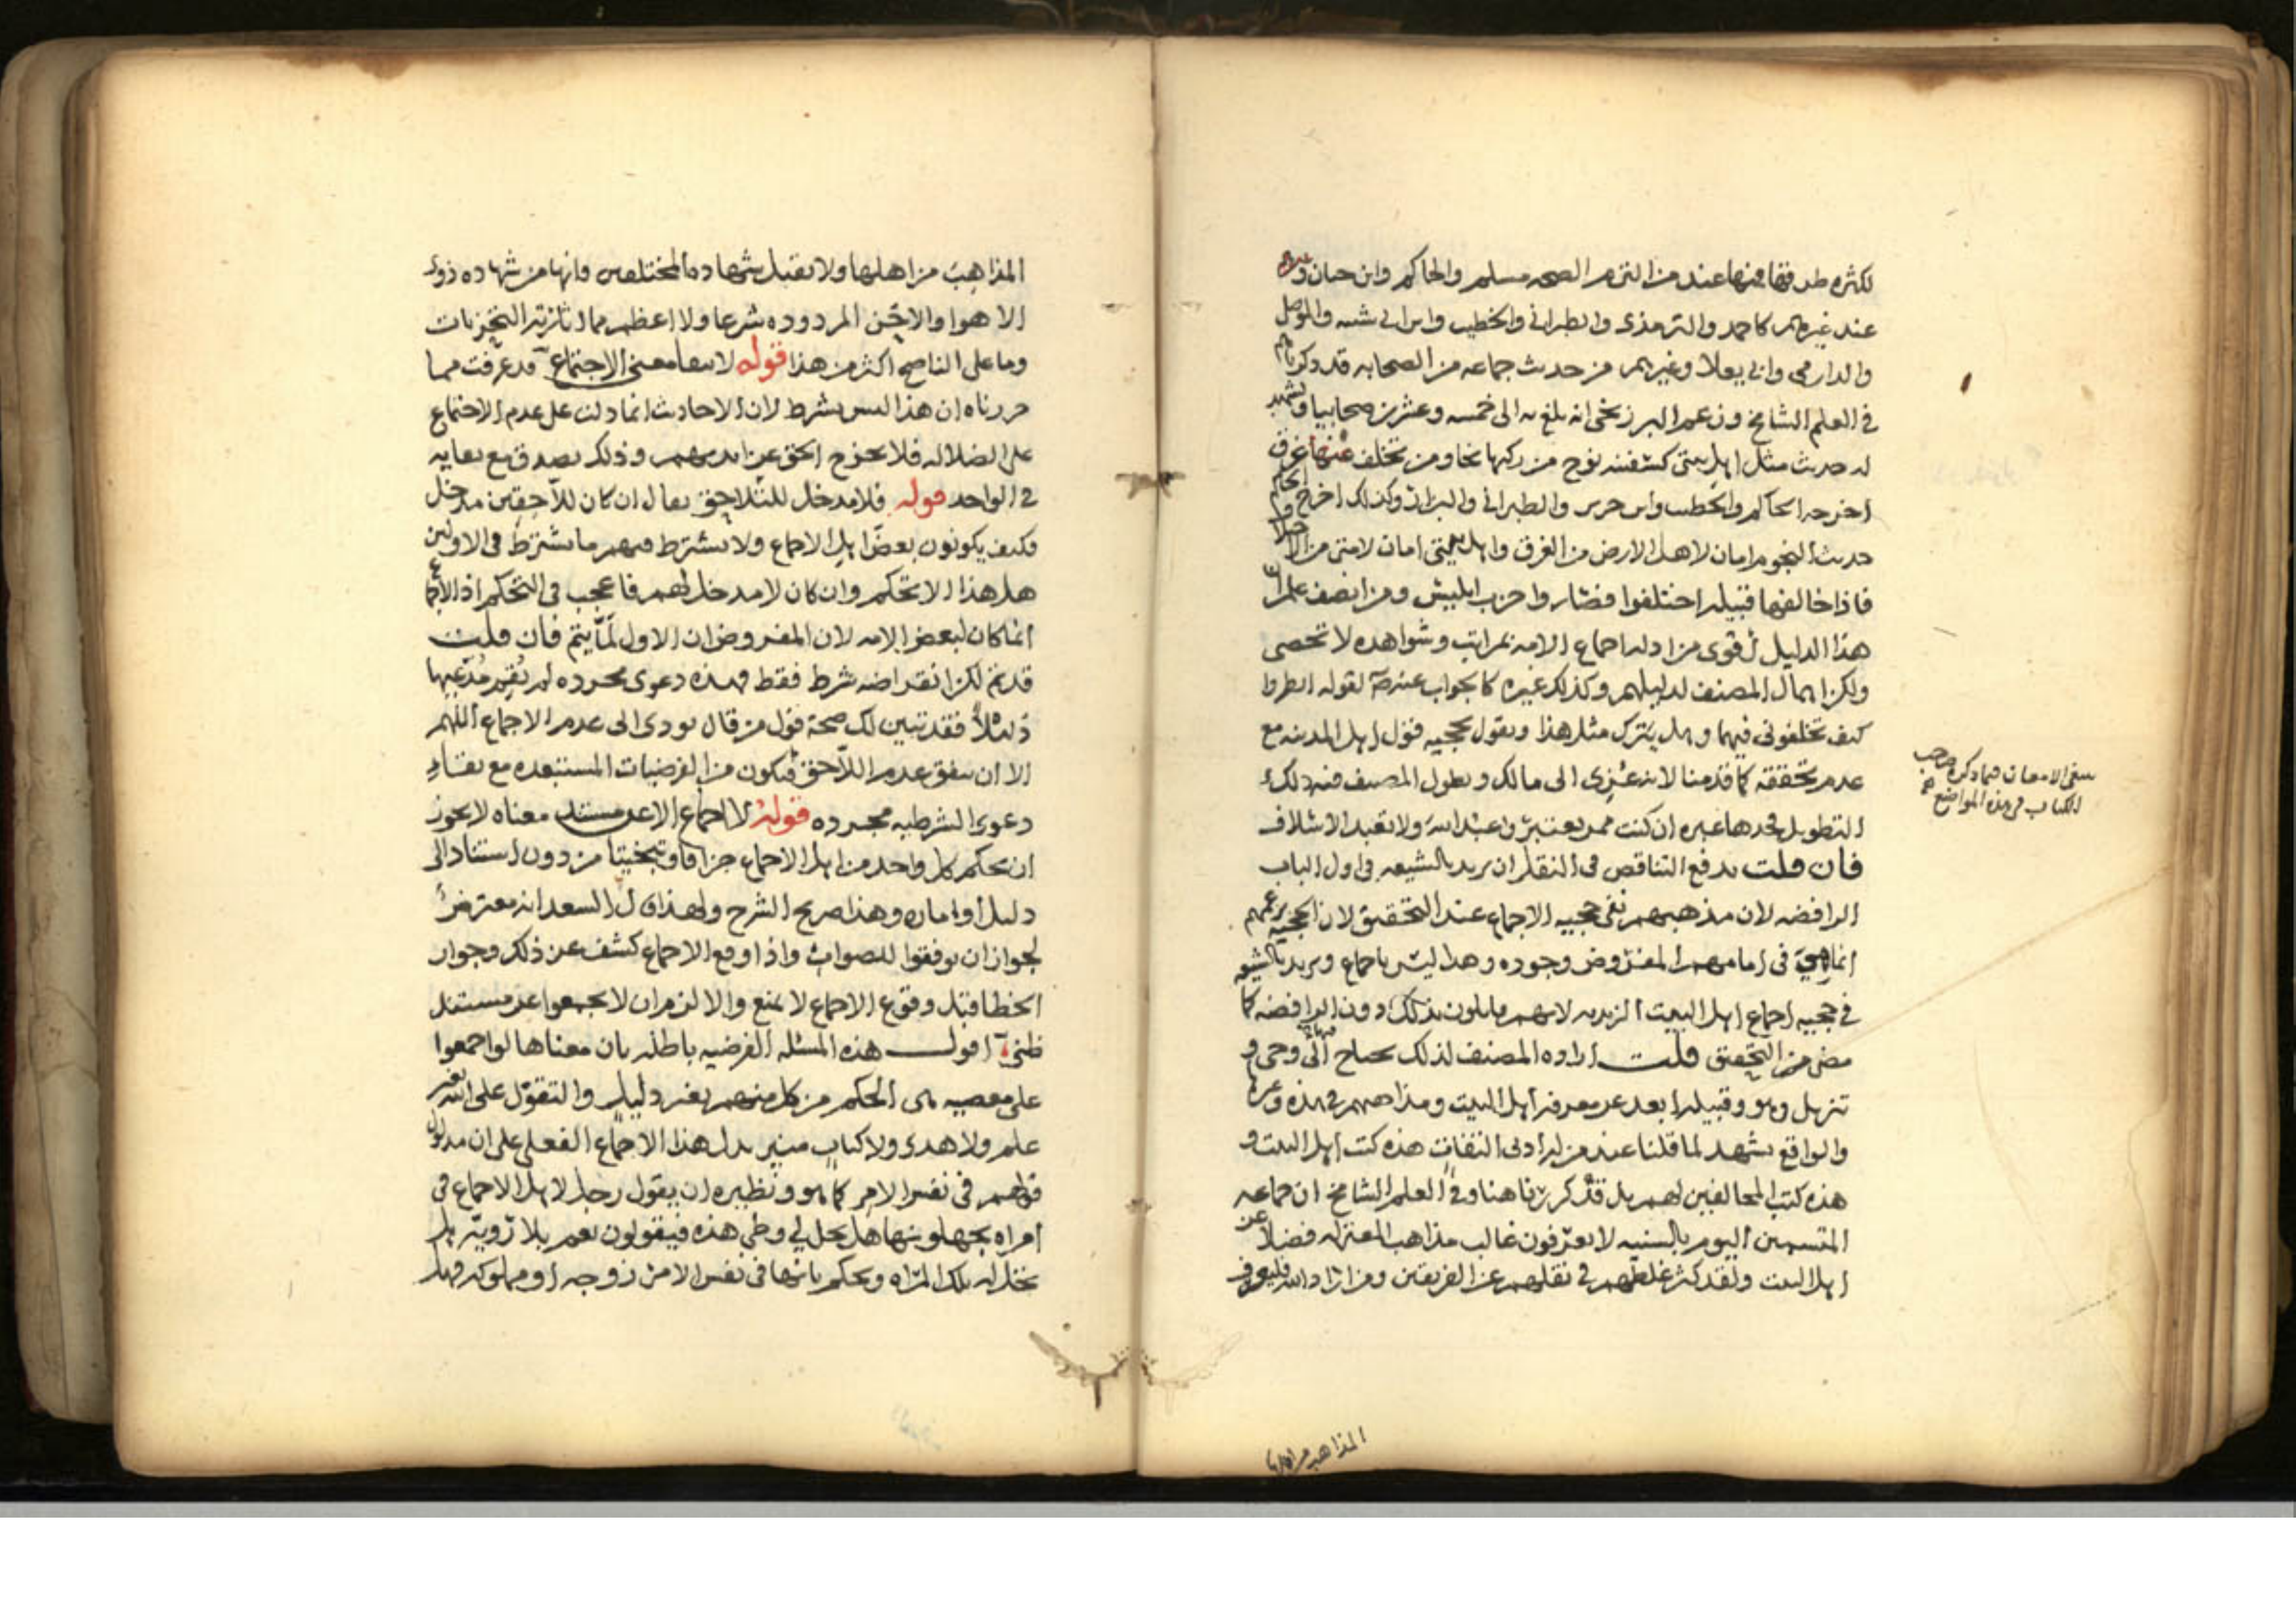 لكثره طرقها فمنها عند من التزم الصحه مسلم والحاكم وابن حبان و
عند غيرهم كاحمد والترمذى والطبرانى والخطيب وابن ابى شيبه والموصلى
والدارمى وابى يعلا وغيرهم من حديث جماعه من الصحابه قد ذكرناهم
فى العلم الشامخ وزعم البرزنجى انه بلغ به الى خمسه وعشرين صحابيا ويشهد
له حديث مثل اهل بيتى كسفينه نوح من ركبها نجا ومن تخلف عنها غرق
اخرجه الحاكم والخطيب وابن جرير والطبرانى والبزار وكذلك اخرج الحاكم
حديث النجوم امان لاهل الارض من الغرق واهل بيتى امان لامتى من الاختلاف
فاذا خالفها قبيله اختلفوا فصاروا حزب ابليس ومن انصف علم ان
هذا الدليل اقوى من ادله اجماع الامه بمراتب وشواهده لا تحصى
ولكن اهمال المصنف لدليلهم وكذلك غيره كالجواب عنه صلى لقوله انظروا
كيف تخلفونى فيهما وهل يترك مثل هذا ويقول بحجيه قول اهل المدينه مع
عدم تحققه كما قدمنا لانه عُزى الى مالك ويطول المصنف فيه ذلك
التطويل فخذها عبره ان كنت ممن يعتبر واعبد الله ولا تعبد الاسلاف
فان قلت يدفع التناقص فى النقل ان يريد بالشيعه فى اول الباب
الرافضه لان مذهبهم نفى حجيه الاجماع عند التحقيق لان الحجيه بزعمهم
انما هى فى امامهم المفروض وجوده وهذا ليس باجماع ويريد بالشيعه
فى حجيه اجماع اهل البيت الزيديه لانهم قايلون بذلك دون الرافضه كما
مضى من التحقيق قلت اراده المصنف لذلك يحتاج الى وحى و
تنزيل وهو وقبيله ابعد عن معرفه اهل البيت ومذاهبهم فى هذه وغيرها
والواقع يشهد لما قلنا عند من له ادنى التفات هذه كتب اهل البيت و
هذه كتب المخالفين لهم بل قد كررنا هنا وفى العلم الشامخ ان جماعه
المتسمين اليوم بالسنيه لا يعرفون غالب مذاهب المعتزله فضلا عن
اهل البيت ولقد كثر غلطهم فى نقلهم عن الفريقين ومن اراد الله فليعرف
ينبغى الامعان فيما ذكره صاحب
الكتاب فى هذه المواضع
المذاهب من اهلها
المذاهب من اهلها ولا يقبل شهاده المختلفين فانها من شهاده ذوى
الاهوا والاحن المردوده شرعا ولا اعظم مما اثارته التحزبات
وما على الناصح اكثر من هذا قوله لا ينفا معنى الاجتماع قد عرفت مما
حررناه ان هذا ليس بشرط لان الاحاديث انما دلت على عدم الاجتماع
على الضلاله فلا يخرج الحق عن ايديهم وذلك يصدق مع بقايه
فى الواحد قوله فلا مدخل للتلاحق يقال ان كان للاحقين مدخل
فكيف يكونون بعض اهل الاجماع ولا يشترط فيهم ما يشترط فى الاولين
هل هذا الا تحكم وان كان لا مدخل لهم فاعجب فى التحكم اذ الاجماع
انما كان لبعض الامه لان المفروض ان الاول لمّا يتم فان قلت
قد تم لكن انقراضه شرط فقط فهذه دعوى مجرده لم يُقِم مُدّعيها
دليلاً فقد تبين لك صحة قول من قال يودى الى عدم الاجماع اللهم
الا ان يتفق عدم اللاحق فيكون من الفرضيات المستبعده مع بقاء
دعوى الشرطيه مجرده قوله لا اجماع الا عن مستند معناه لا يجوز
ان يحكم كل واحد من اهل الاجماع جزافا وتبخيتا من دون استناد الى
دليل او اماره وهذا صريح الشرح ولهذا قال السعد انه معترض
لجواز ان يوفقوا للصواب واذا وقع الاجماع كشف عن ذلك وجواز
الخطا قبل وقوع الاجماع لا يمنع والا لزم ان لا يجمعوا عن مستند
ظنى اقول هذه المسئله الفرضيه باطله بان معناها لو اجمعوا
على معصيه هى الحكم من كل منهم بغير دليل والتقول على الله بغير
علم ولا هدى ولا كتاب منير يدل هذا الاجماع الفعلى على ان مدلول
قولهم فى نفس الامر كما هو ونظيره ان يقول رجل لاهل الاجماع فى
امراه يجهلونها هل يحل لى وطى هذه فيقولون نعم بلا رويّه بل
تحل له تلك المراه ويحكم بانها فى نفس الامر زوجه او مملوكه فهل